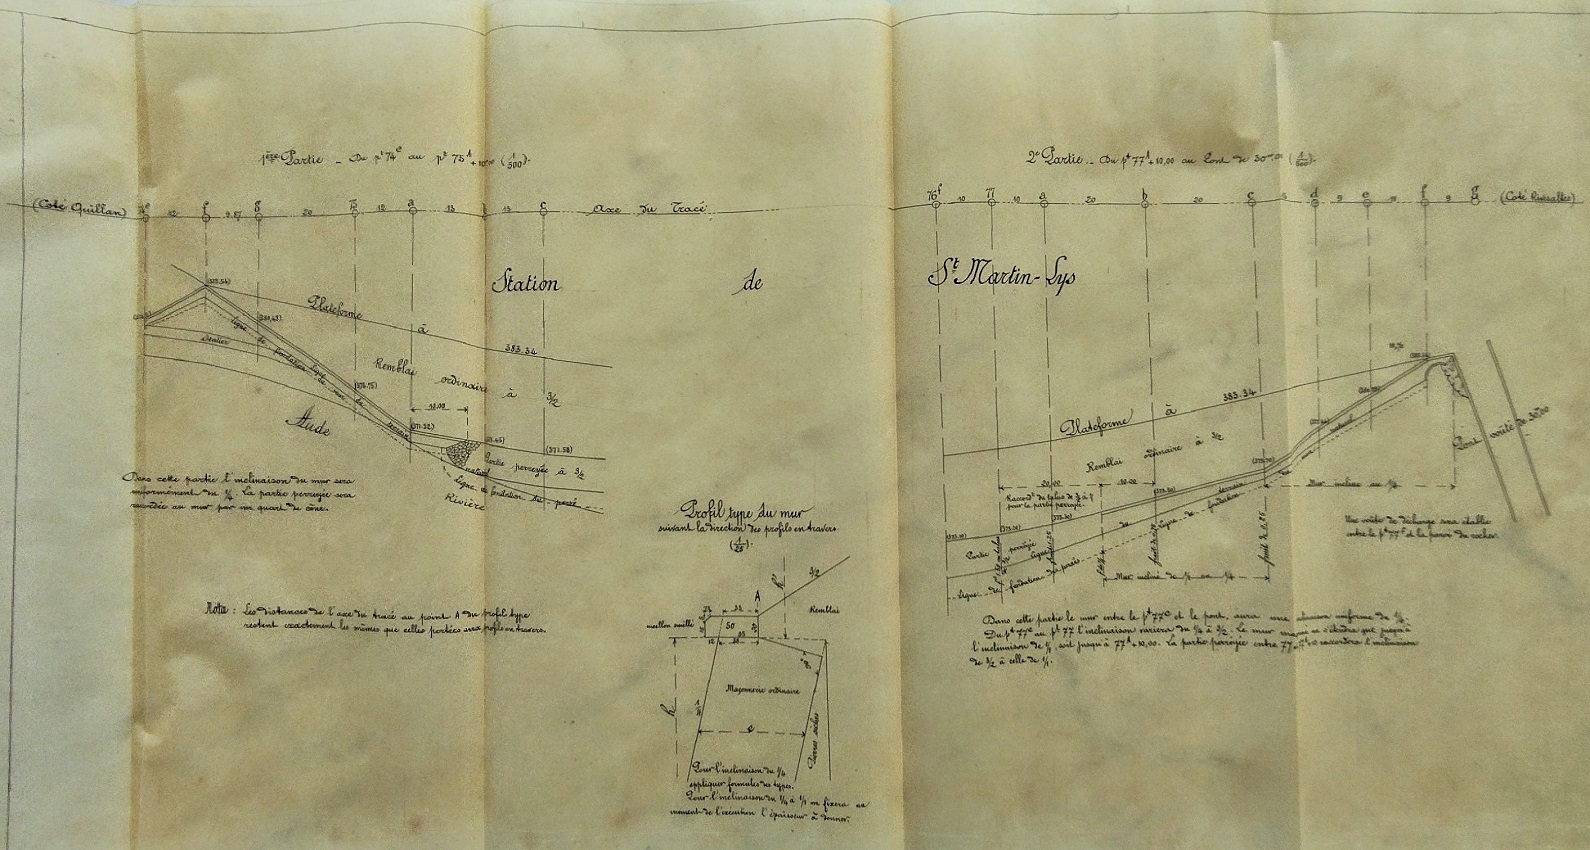 1ère Partie - Du pt 74e au pt 75A + 10.00 (1/500).
2e Partie - Du pt 77A + 10,00 au Pont de 30m,00 (1/500).
(Coté Quillan)
f g h a c
12 9,87 20 12 13 13
Axe du Tracé
76f 77 a b c d e f g
10 10 20 20 9 9
(Coté Rivesaltes)
Station de St Martin-Lys
Plateforme à 383.34
Remblai ordinaire à 3/2
Sentier
Ligne de fondation du mur
Aude
10.00
(371.52)
(371.58)
Partie perreyée à 3/2
Ligne de fondation du perré
Rivière
Dans cette partie l'inclinaison du mur sera
uniformément du 1/4. La partie perreyée sera
raccordée au mur par un quart de cône.
Nota : Les distances de l'axe du tracé au point A du profil type
restent exactement les mêmes que celles portées aux profils en travers.
Profil type du mur
suivant la direction des profils en travers
(1/25)
A
h'
3/2
Remblai
moellon smillé
50
Maçonnerie ordinaire
h
e
Pierres sèches
Pour l'inclinaison du 1/4
appliquer formules des types.
Pour l'inclinaison du 1/4 à 1/1 on fixera au
moment de l'exécution l'épaisseur à donner.
Plateforme à 383.34
Remblai ordinaire à 3/2
20.00 10.00
Raccordt du talus de 3/2 à 1/1
pour la partie perreyée.
terrain naturel
Partie perreyée
Ligne de fondation du perré
Ligne de fondation du
Mur incliné au 1/4
Pont voûté de 30m00
Une voûte de décharge sera établie
entre le pt 77f et la paroi du rocher.
Dans cette partie le mur entre le pt 77c et le pont, aura une inclinaison uniforme de 1/4.
Du pt 77c au pt 77 l'inclinaison variera du 1/4 à 3/2. Le mur ne s'étendra que jusqu'à
l'inclinaison de 1/1, soit jusqu'à 77A + 10,00. La partie perreyée entre 77 raccordera l'inclinaison
de 3/2 à celle de 1/1.